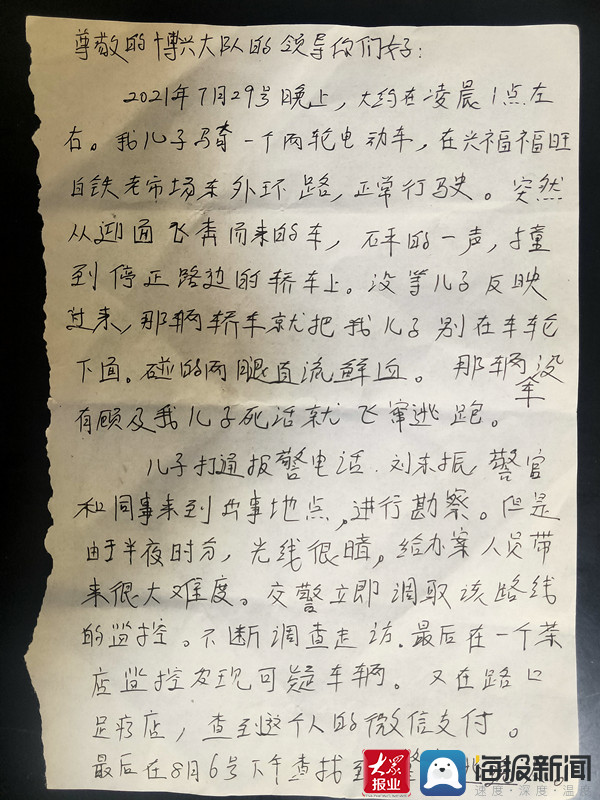 尊敬的博兴大队的领导你们好:
2021年7月29号晚上,大约在凌晨1点左
右。我儿子骑一个两轮电动车,在兴福福旺
自铁老市场东外环路,正常行驶。突然
从迎面飞奔而来的车,砰的一声,撞
到停正路边的轿车上。没等儿子反映
过来,那辆轿车就把我儿子别在车轮
下面。碰的两腿直流鲜血。那辆车没
有顾及我儿子死活就飞窜逃跑。
儿子打通报警电话.刘东振警官
和同事来到出事地点,进行勘察。但是
由于半夜时分,光线很暗,给办案人员带
来很大难度。交警立即调取该路线
的监控。不断调查走访.最后在一个茶
店监控发现可疑车辆。又在路口
足疗店,查到这个人的微信支付。
最后在8月6号下午查找到
大众报业
海报新闻
速度·深度·温度